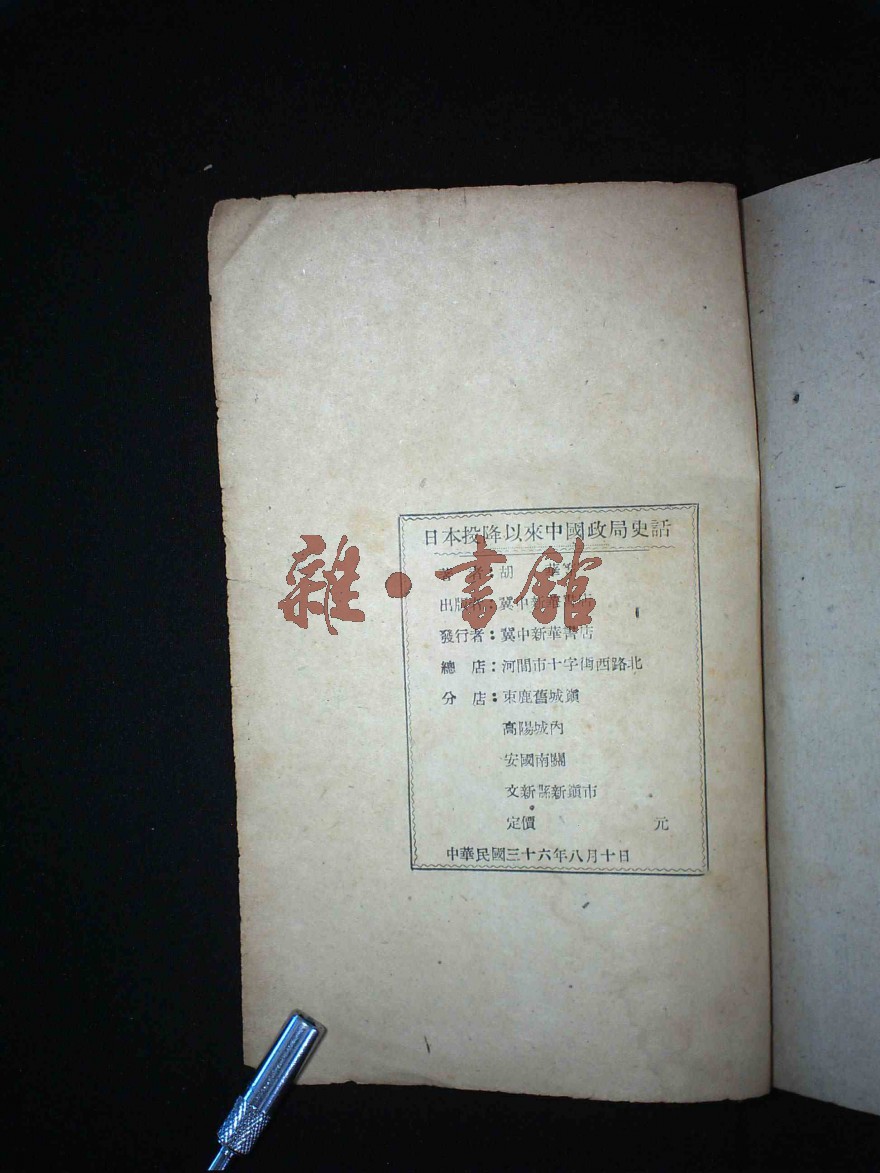 日本投降以來中國政局史話
著 者：胡 華
出版者：冀中新華書店
發行者：冀中新華書店
總 店：河間市十字街西路北
分 店：束鹿舊城鎮
高陽城內
安國南關
文新縣新鎮市
定價 元
中華民國三十六年八月十日
雜·書館